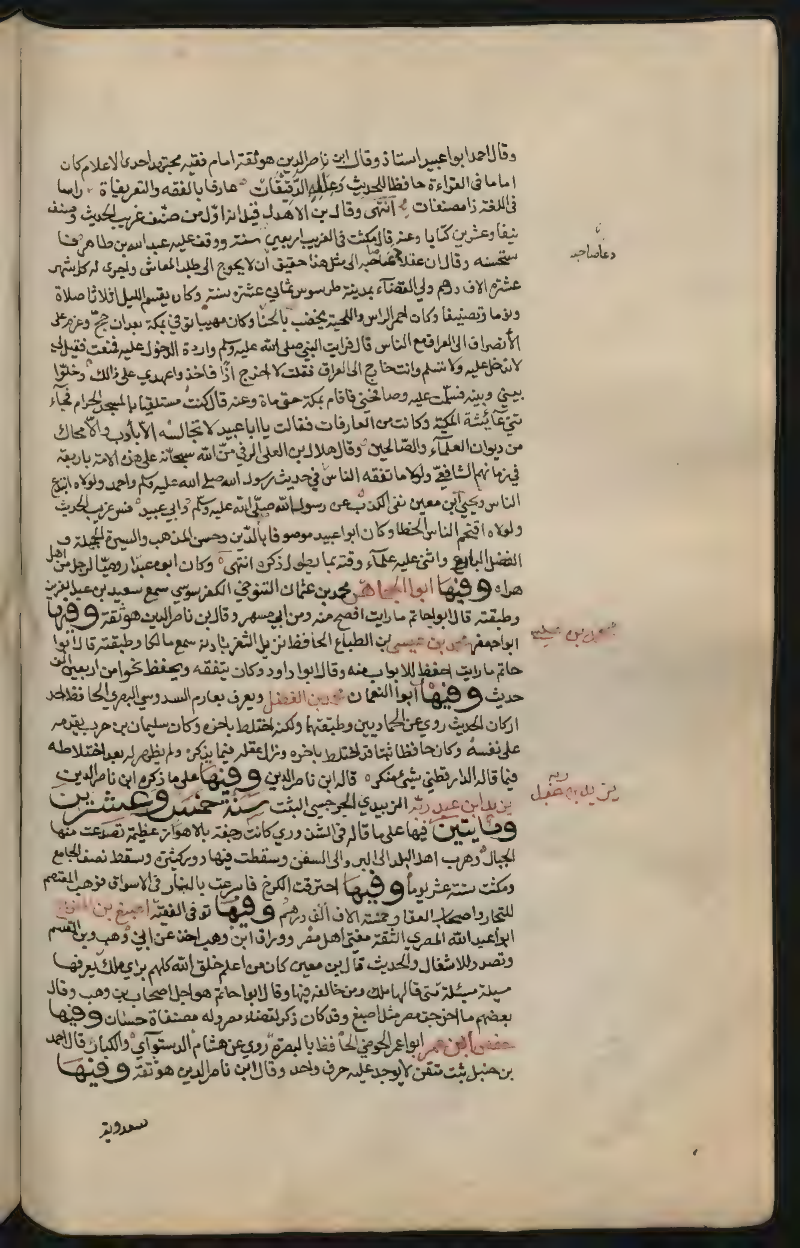 وقال احمد ابوا عبيد استاذ وقال ابن ناصر الدين هو ثقة امام فقيه مجتهد احدى الاعلام كان
اماما في القراءة حافظا للحديث وعلله الدقيقات عارفا بالفقه والتعريفاة راسا
في اللغة ذا مصنفات انتهى وقال بن الاهدل قيل انه اول من صنف غريب الحديث وصنف
نيفا وعشرين كتابا وعنه قال مكثت في الغريب اربعين سنة ووقف عليه عبد الله بن طاهر فا
ستحسنه وقال ان عقلا دعا صاحبه الى مثل هذا حقيق ان لا يحوج الى طلب المعاش واجرى له كل شهر
عشرة الاف درهم ولي القضاء بمدينة طرسوس ثماني عشرة سنة وكان يقسم الليل اثلاثا صلاة
ونوما وتصنيفا وكان احمر الراس واللحية يخضب بالحنا وكان مهيبا توفي بمكة بعد ان حج وعزم على
الانصراف الى العراق مع الناس قال فرايت النبي صلى الله عليه وسلم واردة الدخول عليه فمنعت فقيل لي
لا تدخل عليه ولا تسلم وانت خارج الى العراق فقلت لا اخرج اذا فاخذوا عهدي على ذالك وخلوا
بيني وبينه فسلمت عليه وصافحني فاقام بمكة حتى مات وعنه قال كنت مستلقيا بالمسجد الحرام فجاء
تني عائيشة المكية وكانت من العارفات فقالت يا ابا عبيد لا تجالسه الا بأدب والا محاك
من ديوان العلماء والصالحين وقال هلال بن العلى الرقي من الله سبحانه على هذه الامة باربعة
في زمانهم الشافعي ولولاه ما تفقه الناس في حديث رسول الله صلى الله عليه وسلم واحمد ولولاه ابتدع
الناس ويحيى ابن معين نفى الكذب عن رسول الله صلى الله عليه وسلم وابي عبيد فسر غريب الحديث
ولولاه اقتحم الناس الخطا وكان ابوا عبيد موصوفا بالدين وحسن المذهب والسيرة الجميلة و
الفضل البارع واثنى عليه علماء وقته بما يطول ذكره انتهى وكان ابوه عبدا روميا لرجل من اهل
هراه وفيها ابوا الجماهر محمد بن عثمان التنوخي الكفرسوسي سمع سعيد بن عبد العزيز
وطبقته قال ابوا حاتم ما رايت افصح منه ومن ابي مسهر وقال بن ناصر الدين هو ثقة وفيها
ابوا جعفر محمد بن عيسى بن الطباع الحافظ نزيل الثغر باذنة سمع مالكا وطبقته قال ابوا
حاتم ما رايت احفظ للابواب منه وقال ابوا داود وكان يتفقه ويحفظ نحوا من اربعين الف
حديث وفيها ابوا النعمان محمد بن الفضل ويعرف بعارم السدوسي البصري الحافظ احد
اركان الحديث روى عن الحمادين وطبقتهما ولكنه اختلط باخره وكان سليمان بن حرب يقدمه
على نفسه وكان حافظا ثبتا قد اختلط باخره وزال عقله فيما يذكر ولم يظهر له بعد اختلاطه
فيما قاله الدارقطني شيئ منكر قاله ابن ناصر الدين وفيها على ما ذكره ابن ناصر الدين
يزيد ابن عبد ربه الزبيدي الجرجسي الثبت سنة خمس وعشرين
ومايتين فيها على ما قاله في الشذوري كانت رجفة بالاهواز عظيمة تصدعت منها
الجبال وهرب اهل البلد الى البر والى السفن وسقطت فيها دور كثيرة وسقط نصف الجامع
ومكثت ستة عشر يوما وفيها احترقت الكرخ فاسرعت بالنار في الاسواق فوهب المعتصم
للتجار واصحاب العقار خمسة الاف الف درهم وفيها توفى الفقيه اصبغ بن الفرج
ابوا عبد الله المصري الثقة مفتي اهل مصر ووراق ابن وهب اخذ عن ابي وهب وبن القسم
وتصدر للاشغال والحديث قال بن معين كان من اعلم خلق الله كلهم براي مالك يعرفها
مسيلة مسيلة متى قالها مالك ومن خالفه فيها وقال ابوا حاتم هو اجل اصحاب بن وهب وقال
بعضهم ما اخرجت مصر مثل اصبغ وقد كان ذكر لقضاء مصر وله مصنفاة حسان وفيها
حفص ابن عمر ابوا عمر الحوضي الحافظ بالبصرة روى عن هشام الدستوآي والكبار قال احمد
بن حنبل ثبت متقن لا يوجد عليه حرف واحد وقال ابن ناصر الدين هو ثقة وفيها
سعدويه
دعا صاحبه
محمد بن عيسى
يزيد بن عبد ربه